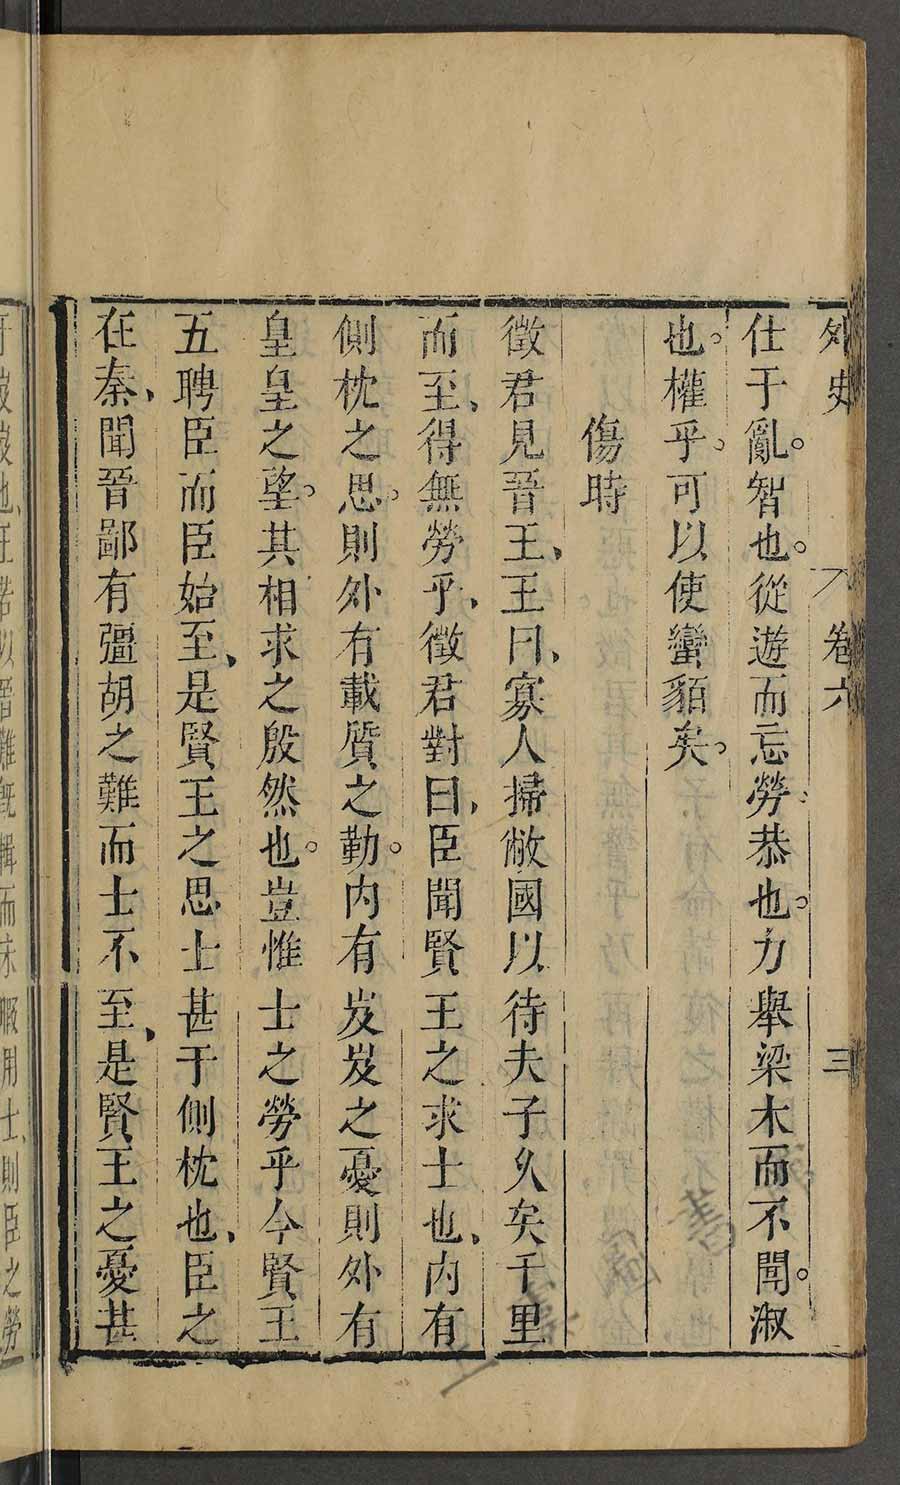 外史 卷六 三
仕于亂。智也。從遊而忘勞。恭也。力舉梁木而不聞。淑
也。權乎。可以使蠻貊矣。
傷時
徵君見晉王、王曰、寡人掃敝國以待夫子久矣千里
而至、得無勞乎、徵君對曰、臣聞賢王之求士也、內有
側枕之思。則外有載質之勤。內有岌岌之憂則外有
皇皇之望。其相求之殷然也。豈惟士之勞乎今賢王
五聘臣而臣始至、是賢王之思士甚于側枕也、臣之
在秦、聞晉鄙有彊胡之難而士不至、是賢王之憂甚
于岌岌也、王若以晉難既輯而未暇用士、則臣之勞